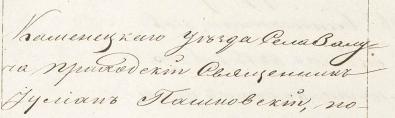 Каменецкаго уѣзда Села Залу-
ча приходскій Священникъ
Іуліанъ Пашковскій, по-